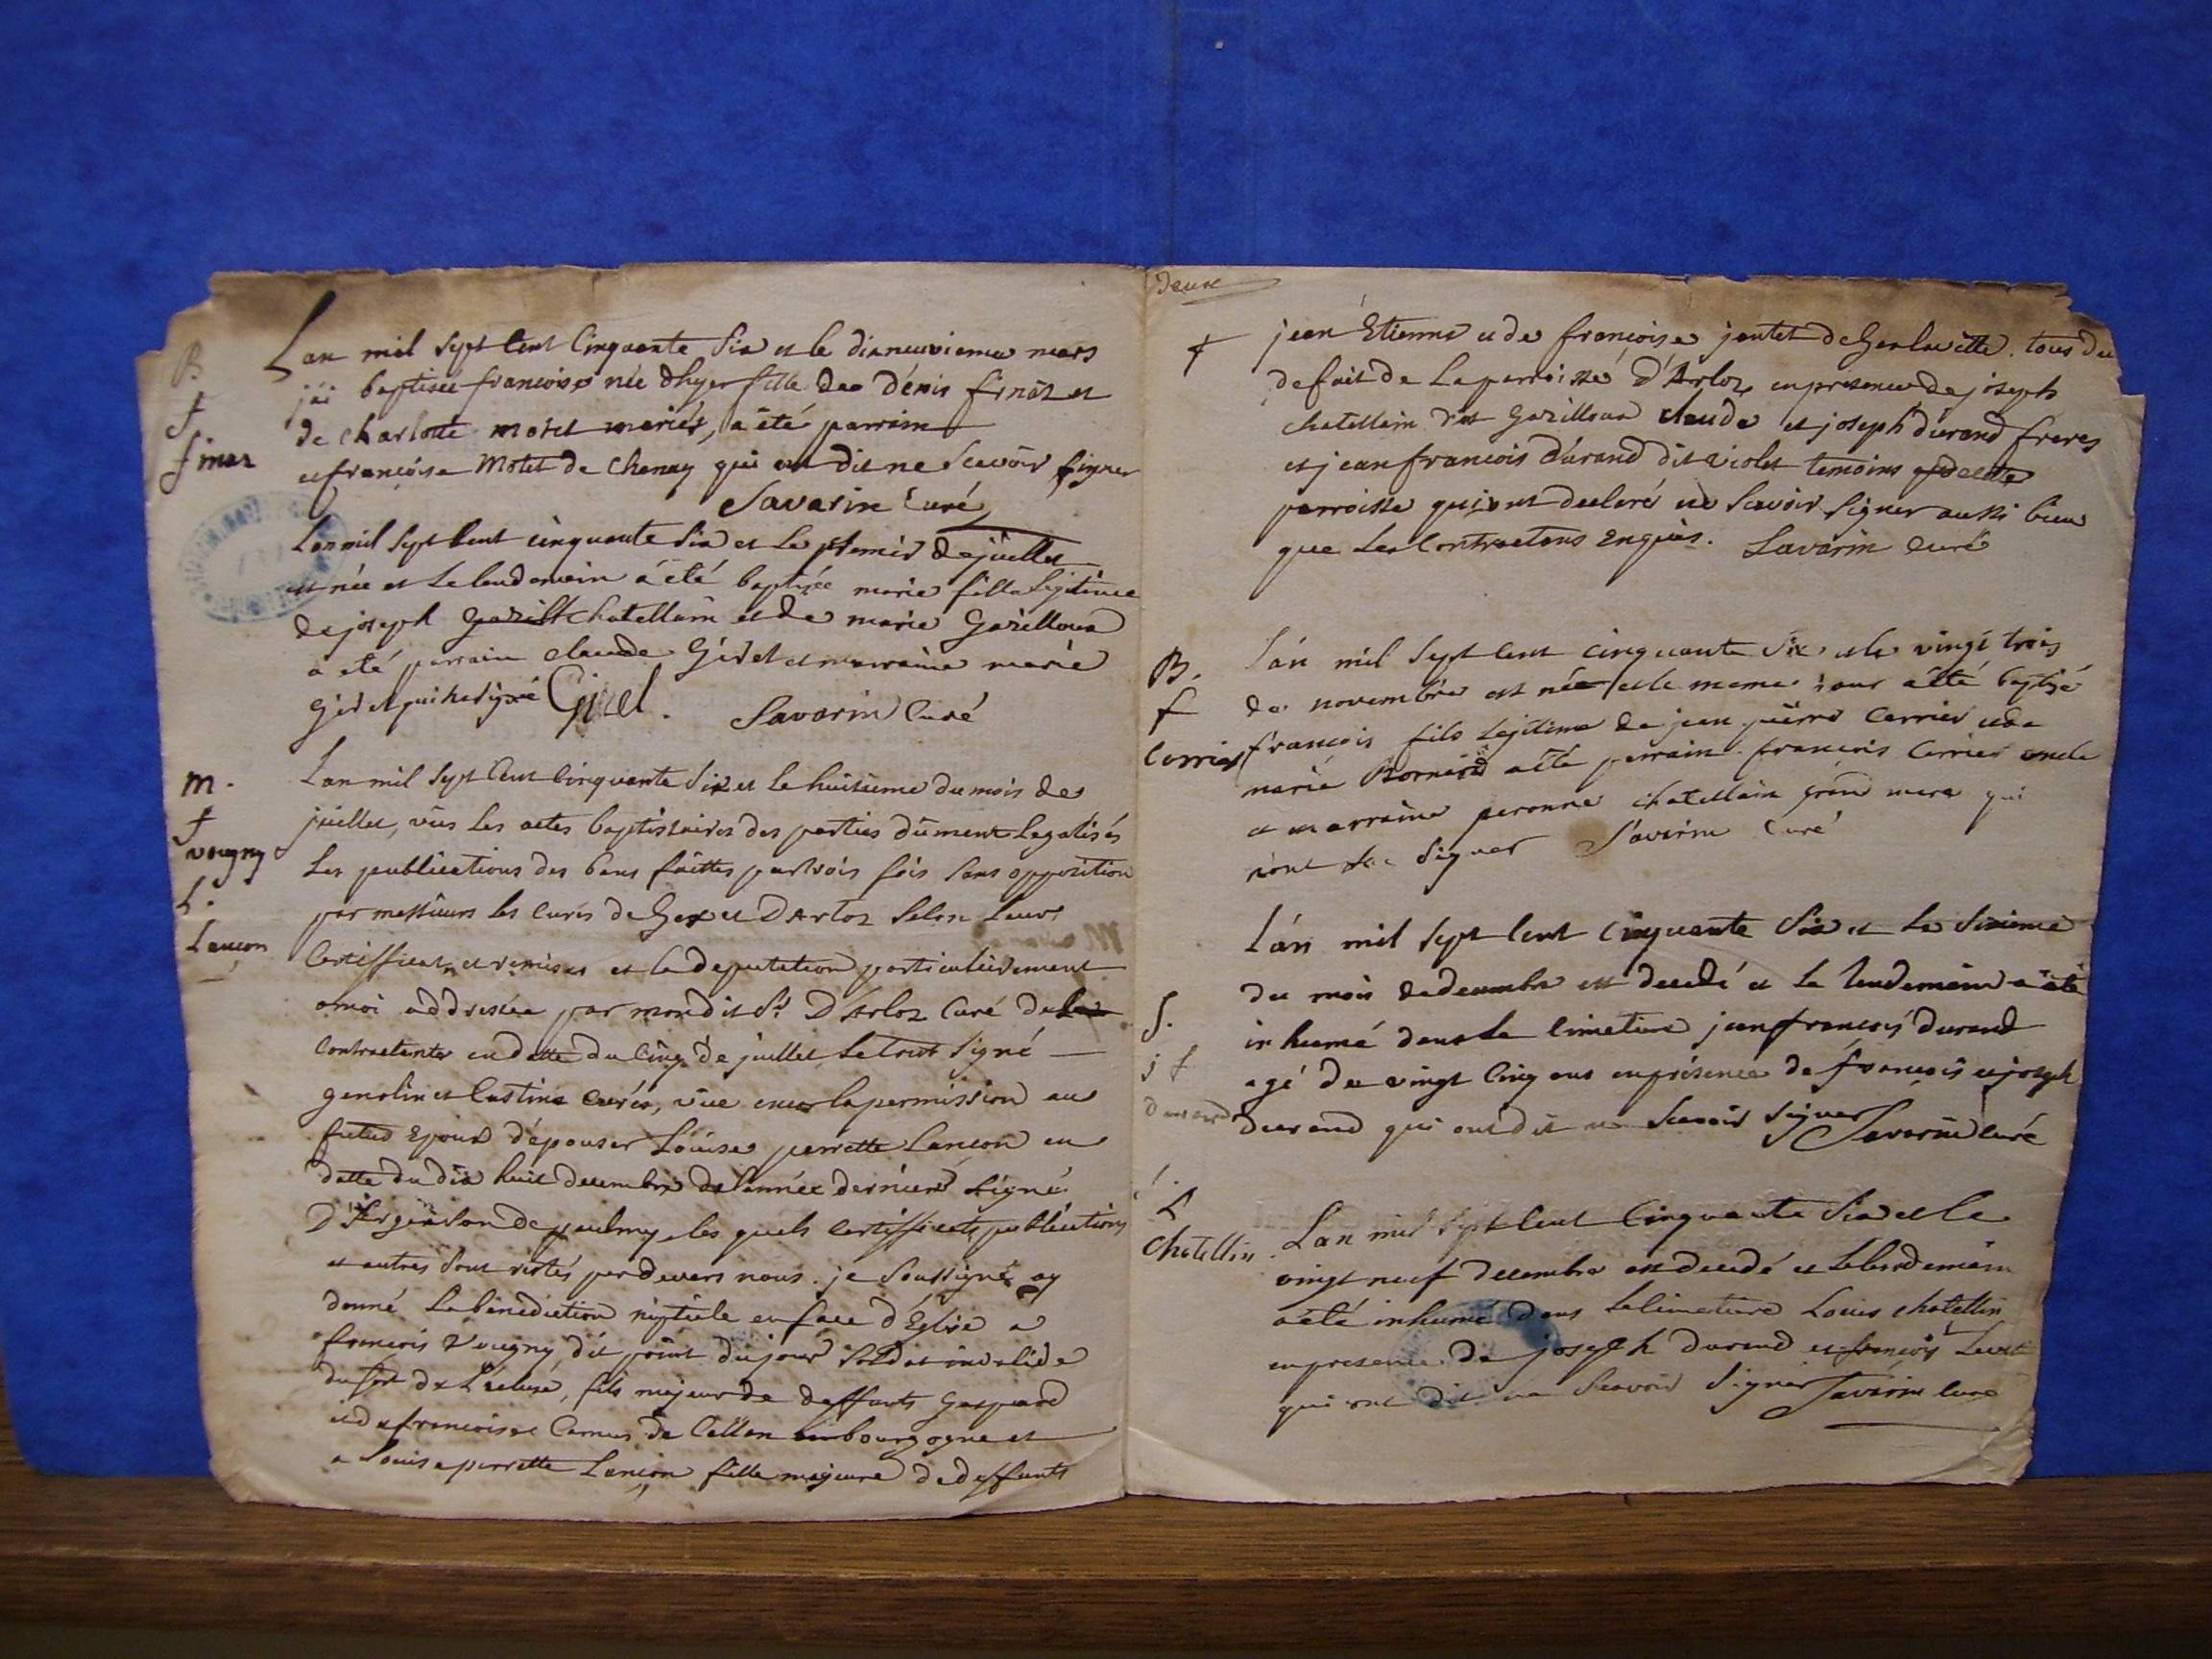 B.
f
finaz
Lan mil Sept Cent Cinquante Six et le dixneuvieme mars
j'ai baptisée francoise née dhyer fille de denis finaz et
de charlotte motet mariés, a été parrain
et francoise Motet de Chenay qui ont dit ne Scavoir signer
Savarin Curé
Lan mil Sept Cent cinquante Six et le premier de juillet
est née et le lendemain a été baptisée marie fille legitime
de joseph Chatellain et de marie Gazilloua
a été parrain claude Girel et marraine marie
Girel Girel. Savarin Curé
m.
f
vougny
L.
Lancon
Lan mil Sept Cent Cinquante Six et le huitieme du mois de
juillet, vûs les actes baptistaires des parties dûment legalisés
Les publications des bans faittes par trois fois sans opposition
par messieurs les Curés de Gex et D'Arloz Selon leurs
Certifficats et remises et la deputation particulierement
a moi addressée par mondit Sr D'Arloz Curé de la
Contractante en datte du Cinq de juillet le tout Signé
genolin et Castine Curés, vüe encor la permission au
futur Epoux d'épouser Louise perrette Lancon en
datte du dix huit decembre de l'année derniere Signé
D'Argenson de paulmy les quels Certifficats, publications
et autres Sont restés par devers nous. je Soussigné ay
donné la bénédiction nuptiale en face d'Eglise a
francois vougny dit point du jour Soldat invalide
du fort de L'ecluse, fils majeur de deffunts Gaspard
et de francoise Camus de en bourgogne et
a Louise perrette Lançon fille majeure de deffunts
deux
f
jean Etienne et de francoise jantet de tous du
de fait de la parroisse D'Arloz en presence de joseph
chatellain dit Gazilloua claude et joseph durand freres
et jean francois durand dit violet temoins
parroisse qui ont declaré ne Scavoir Signer aussi bien
que les Contractans enquis. Savarin Curé
B.
f
Carrier
L'an mil Sept Cent cinquante Six et le vingt trois
de novembre est né et le meme jour a été baptisé
francois fils legitime de jean pierre Carrier et de
marie a été parrain francois Carrier oncle
et marraine peronne chatellain grand mere qui
n'ont Sçu Signer Savarin Curé
S.
j f
durand
L'an mil Sept Cent Cinquante Six et le Sixieme
du mois de decembre est decedé et le lendemain a été
inhumé dans le Cimetiere jean francois durand
agé de vingt Cinq ans en présence de francois et joseph
durand qui ont dit ne Scavoir Signer Savarin Curé
L
Chatellin
Lan mil Sept Cent Cinquante Six et le
vingt neuf decembre est decedé et le lendemain
a été inhumé dans le Cimetiere Louis chatellin
en presence de joseph durand et françois
qui ont dit ne Scavoir Signer Savarin Curé